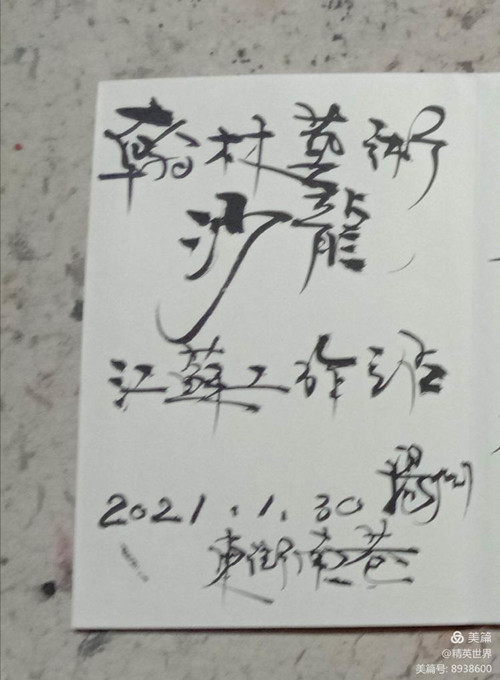 翰村藝術
沙龍
江蘇工作站
2021.1.30 揚州
東街南巷
美篇
@精英世界
美篇号: 8938600